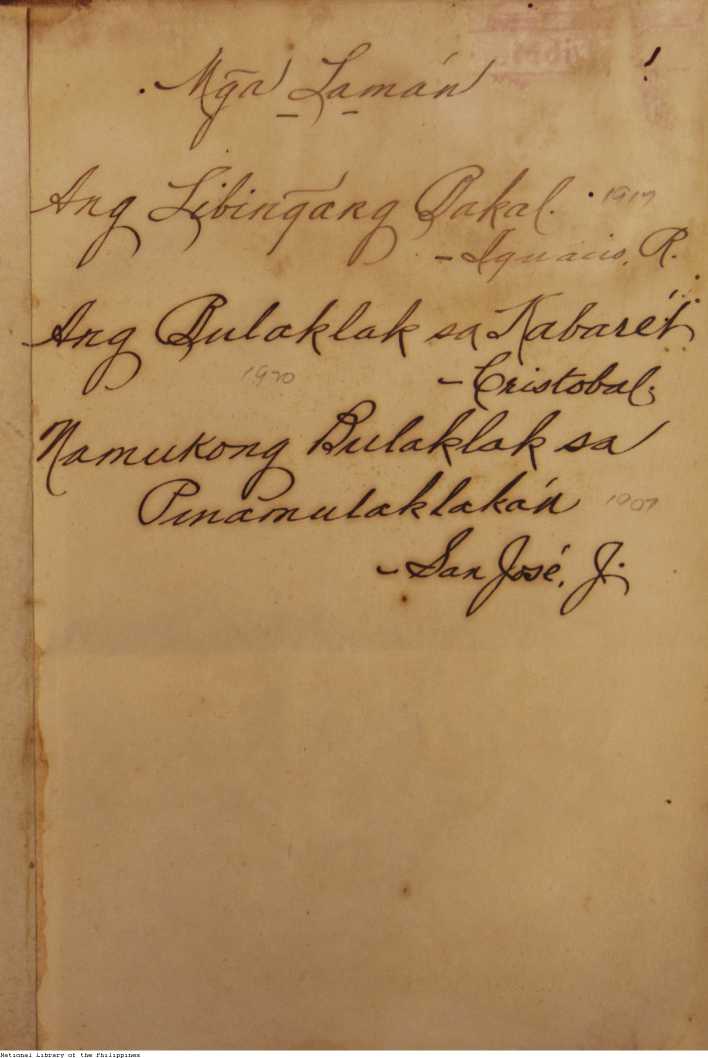 Mg̃a Lamán
Ang Libing̃áng Bakal. 1917
- Ignacio, R.
Ang Bulaklak sa Kabarét
1920
- Cristobal,
Namukong Bulaklak sa
Pinamulaklakán 1907
- San José, J.
National Library of the Philippines